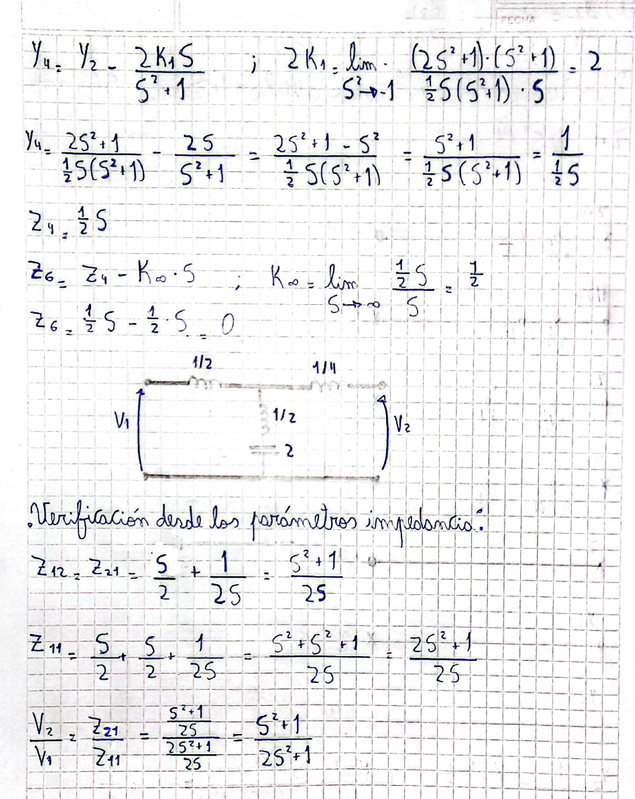 FECHA
Y4 = Y2 - 2K1S/(S²+1) ; 2K1 = lim S²→-1 (2S²+1)·(S²+1)/(½S(S²+1)·S) = 2
Y4 = (2S²+1)/(½S(S²+1)) - 2S/(S²+1) = (2S²+1-S²)/(½S(S²+1)) = (S²+1)/(½S(S²+1)) = 1/(½S)
Z4 = ½S
Z6 = Z4 - K∞·S ; K∞ = lim S→∞ (½S)/S = ½
Z6 = ½S - ½·S = 0
1/2 1/4
V1 1/2 V2
2
.Verificación desde los parámetros impedancia:
Z12 = Z21 = S/2 + 1/2S = (S²+1)/2S
Z11 = S/2 + S/2 + 1/2S = (S²+S²+1)/2S = (2S²+1)/2S
V2/V1 = Z21/Z11 = ((S²+1)/2S)/((2S²+1)/2S) = (S²+1)/(2S²+1)